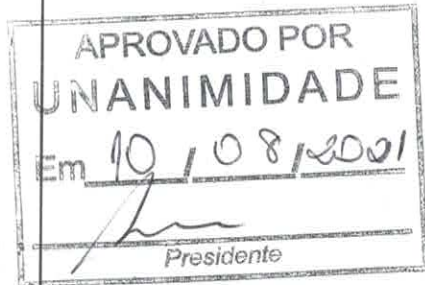 APROVADO POR
UNANIMIDADE
Em 10 / 08 / 2001
Presidente